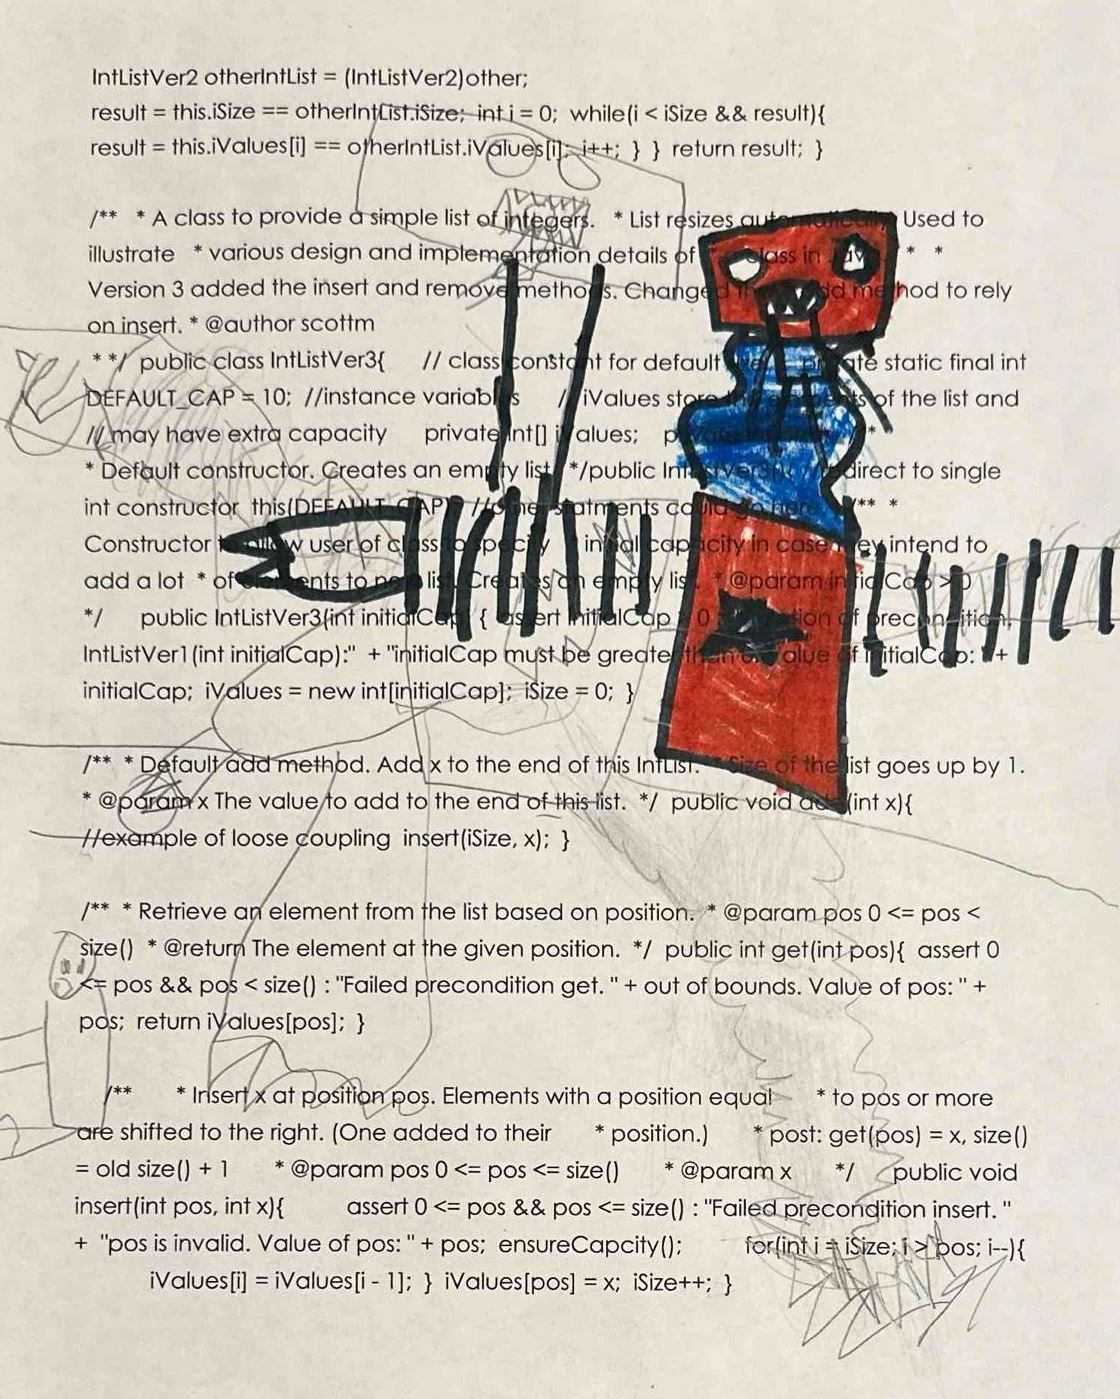 IntListVer2 otherIntList = (IntListVer2)other;
result = this.iSize == otherIntList.iSize; int i = 0; while(i < iSize && result){
result = this.iValues[i] == otherIntList.iValues[i]; i++; } } return result; }
/** * A class to provide a simple list of integers. * List resizes automatically. Used to
illustrate * various design and implementation details of a class in Java. * *
Version 3 added the insert and remove methods. Changed the add method to rely
on insert. * @author scottm
* **/ public class IntListVer3{ // class constant for default private static final int
DEFAULT_CAP = 10; //instance variables // iValues store the elements of the list and
// may have extra capacity private int[] iValues; private *
* Default constructor. Creates an empty list. */public IntListVer3(){ //redirect to single
int constructor this(DEFAULT_CAP); //other statments could go here. /** *
Constructor to allow user of class to specify * initial capacity in case they intend to
add a lot * of elements to new list. Creates an empty list. * @param initialCap > 0
*/ public IntListVer3(int initialCap) { assert initialCap > 0 : "Violation of precondition.
IntListVer1(int initialCap):" + "initialCap must be greater than 0. Value of initialCap: " +
initialCap; iValues = new int[initialCap]; iSize = 0; }
/** * Default add method. Add x to the end of this IntList. * Size of the list goes up by 1.
* @param x The value to add to the end of this list. */ public void add(int x){
//example of loose coupling insert(iSize, x); }
/** * Retrieve an element from the list based on position. * @param pos 0 <= pos <
size() * @return The element at the given position. */ public int get(int pos){ assert 0
<= pos && pos < size() : "Failed precondition get. " + out of bounds. Value of pos: " +
pos; return iValues[pos]; }
/** * Insert x at position pos. Elements with a position equal * to pos or more
are shifted to the right. (One added to their * position.) * post: get(pos) = x, size()
= old size() + 1 * @param pos 0 <= pos <= size() * @param x */ public void
insert(int pos, int x){ assert 0 <= pos && pos <= size() : "Failed precondition insert. "
+ "pos is invalid. Value of pos: " + pos; ensureCapcity(); for(int i = iSize; i > pos; i--){
iValues[i] = iValues[i - 1]; } iValues[pos] = x; iSize++; }